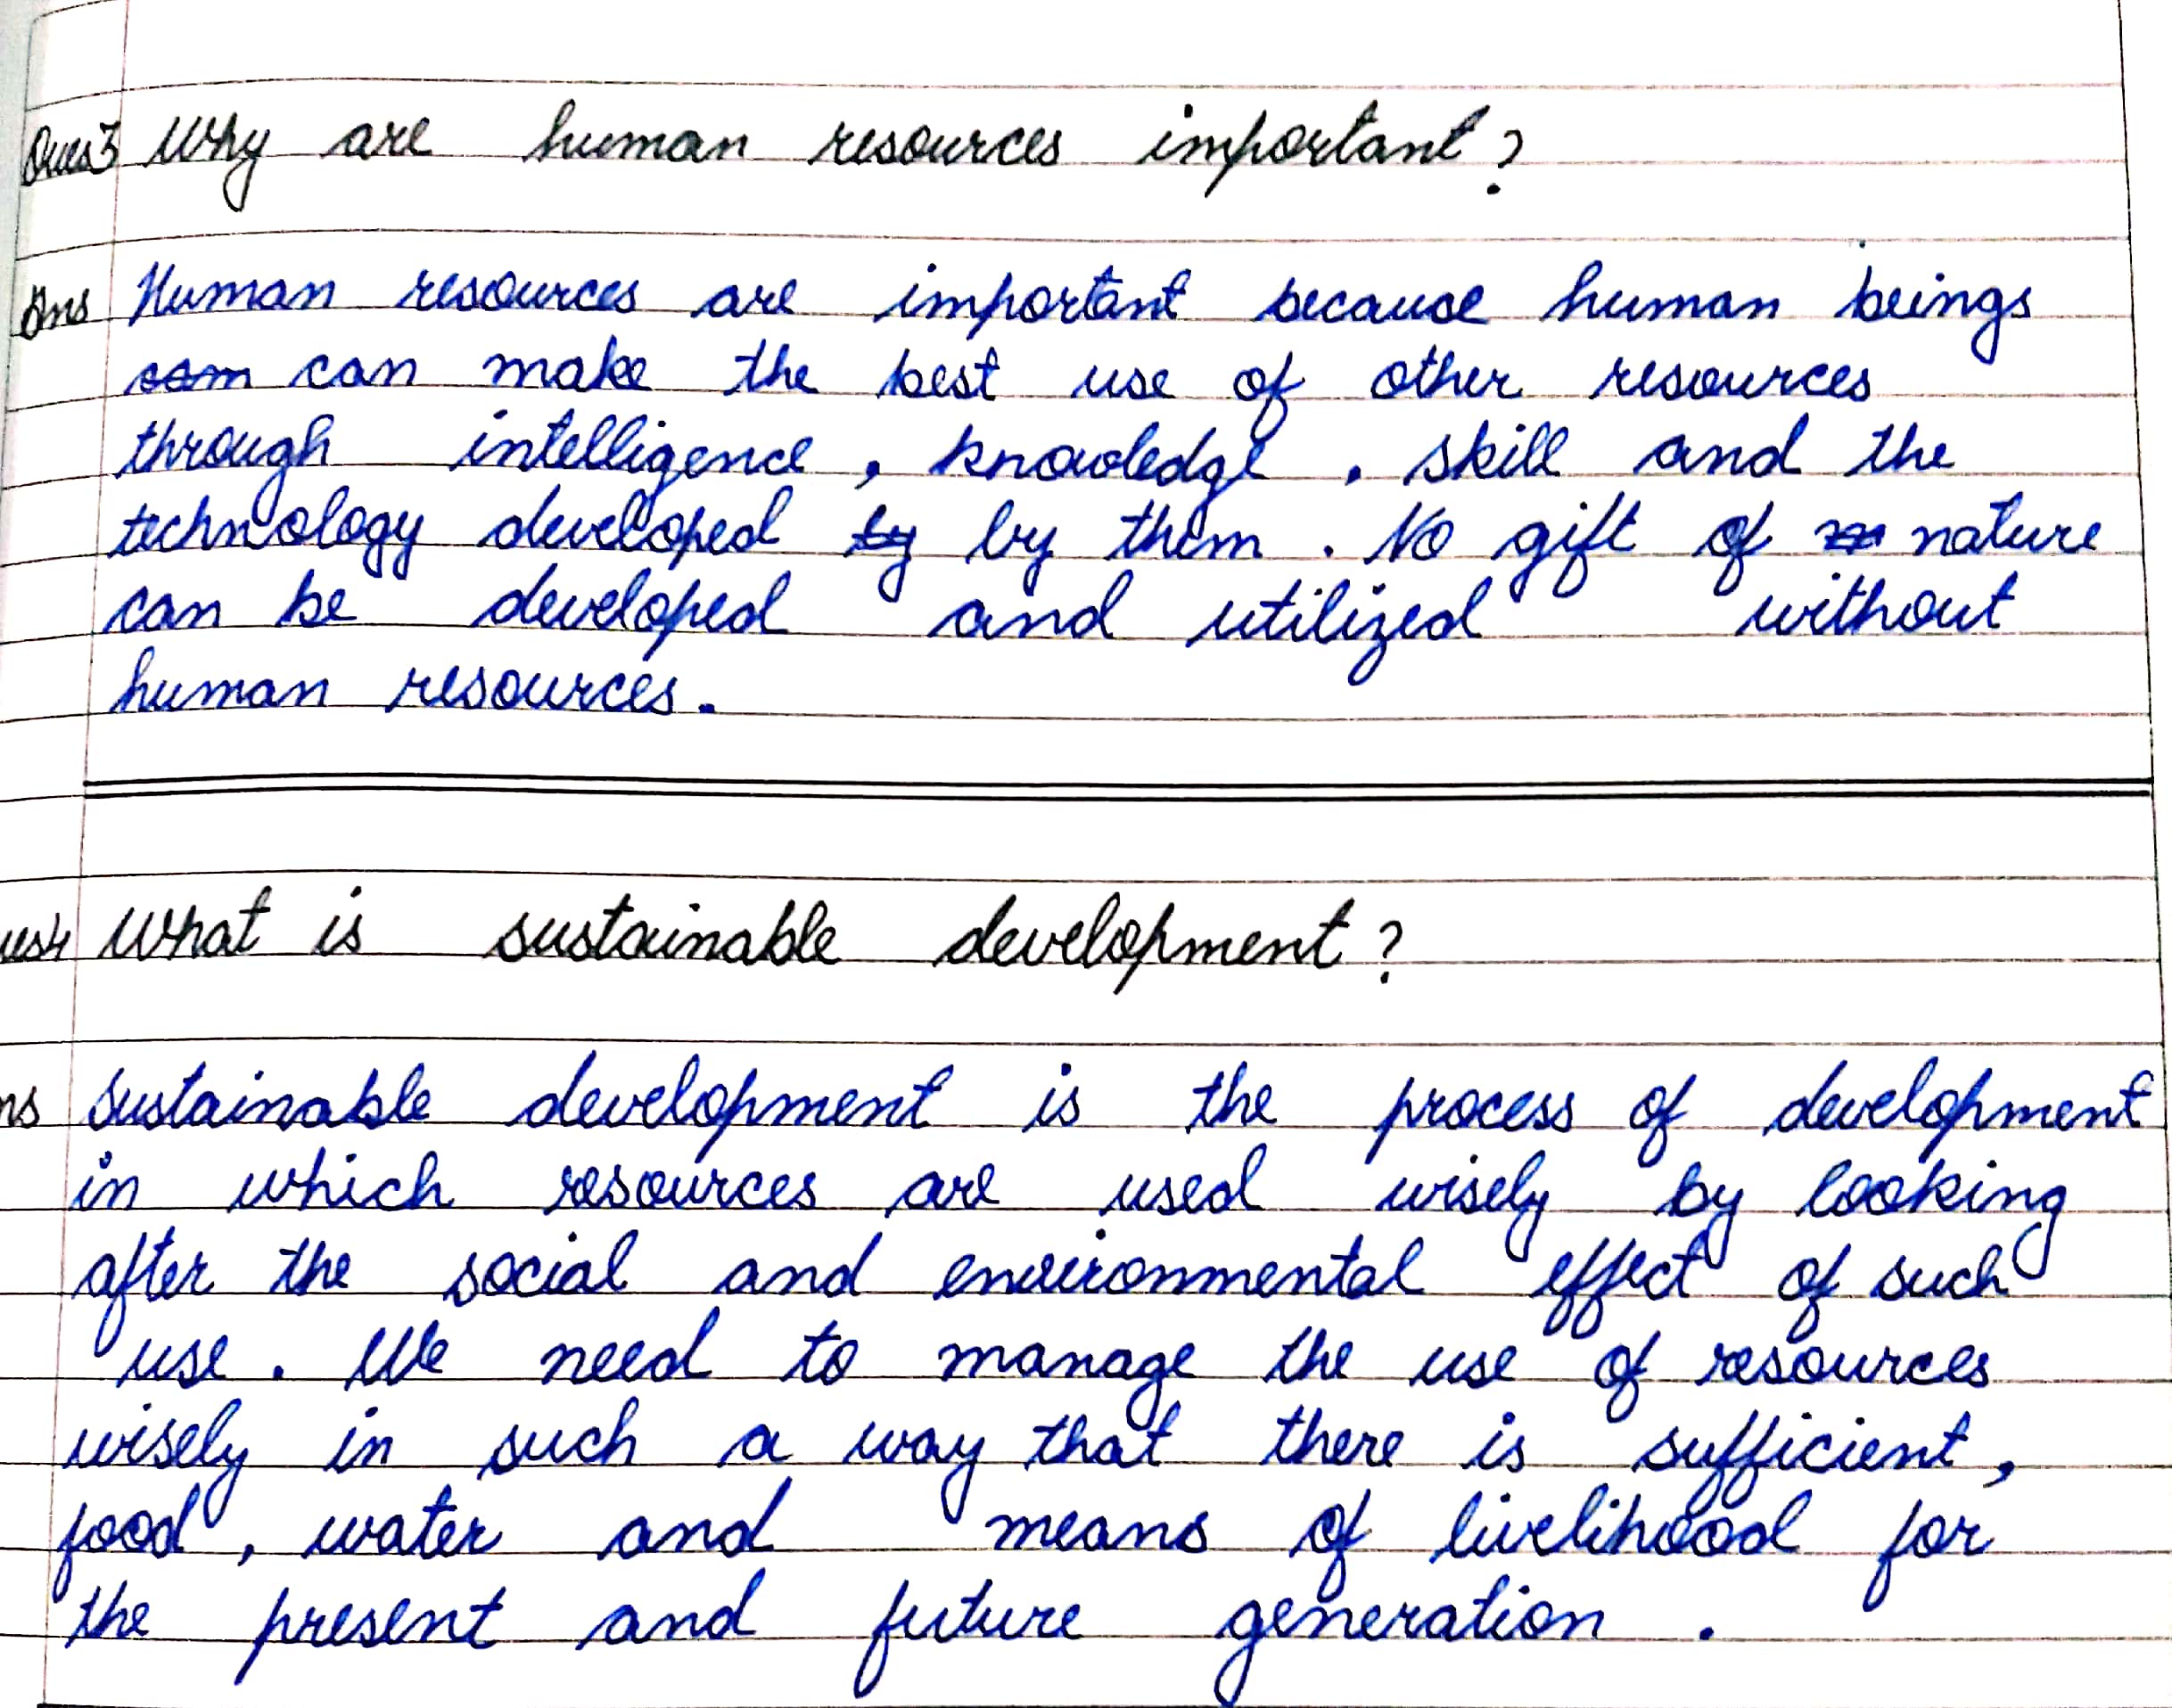 Ques3 Why are human resources important?
Ans Human resources are important because human beings
can make the best use of other resources
through intelligence, knowledge, skill and the
technology developed by by them. No gift of nature
can be developed and utilized without
human resources.
ues4 What is sustainable development?
ns Sustainable development is the process of development
in which resources are used wisely by looking
after the social and environmental effect of such
use. We need to manage the use of resources
wisely in such a way that there is sufficient,
food, water and means of livelihood for
the present and future generation.